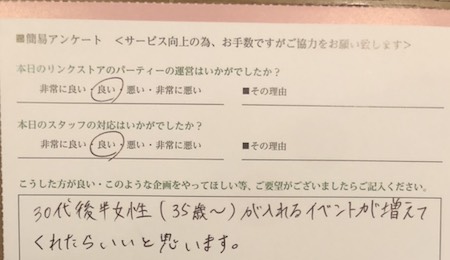 ■簡易アンケート ＜サービス向上の為、お手数ですがご協力をお願い致します＞
本日のリンクストアのパーティーの運営はいかがでしたか？
非常に良い・良い・悪い・非常に悪い ■その理由
本日のスタッフの対応はいかがでしたか？
非常に良い・良い・悪い・非常に悪い ■その理由
こうした方が良い・このような企画をやってほしい等、ご要望がございましたらご記入ください。
30代後半女性(35歳〜)が入れるイベントが増えて
くれたらいいと思います。